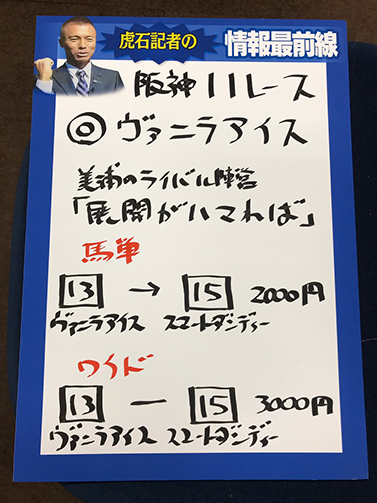 虎石記者の 情報最前線
阪神11レース
◎ヴァニラアイス
美浦のライバル陣営
「展開がハマれば」
馬単
13 → 15 2000円
ヴァニラアイス スマートダンディー
ワイド
13 － 15 3000円
ヴァニラアイス スマートダンディー